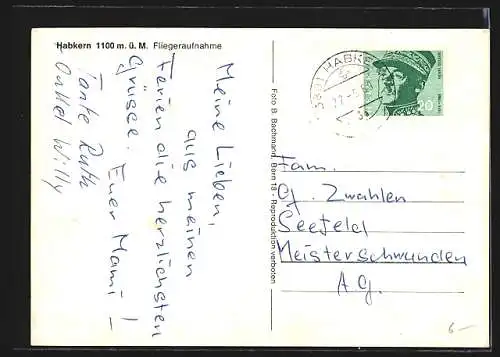 Habkern 1100 m. ü. M. Fliegeraufnahme
Meine Lieben,
aus meinen
Ferien die herzlichsten
Grüsse. Euer Mami!
Tante Ruth
Onkel Willy
Foto B. Bachmann, Bern 18 - Reproduktion verboten
HABKE
20
Fam.
G. Zwahlen
Seefeld
Meisterschwanden
A.G.
6.-